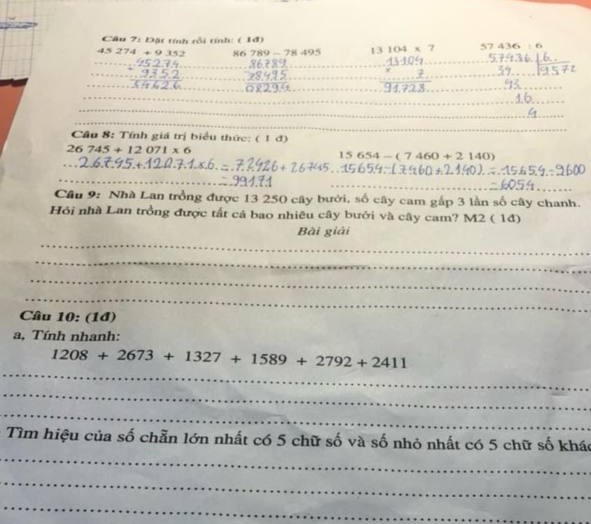 Câu 7: Đặt tính rồi tính: ( 1đ)
45 274 + 9 352 86 789 – 78 495 13 104 x 7 57 436 : 6
45274 86789 13104 57436 6
+ 9352 78495 x 7 34 9572
54626 08294 91.728 43
16
4
Câu 8: Tính giá trị biểu thức: ( 1 đ)
26 745 + 12 071 x 6 15 654 – ( 7 460 + 2 140)
26745 + 12071 x 6 = 72426 + 26745 15654 - (7460 + 2140) = 15654 - 9600
= 99171 = 6054
Câu 9: Nhà Lan trồng được 13 250 cây bưởi, số cây cam gấp 3 lần số cây chanh.
Hỏi nhà Lan trồng được tất cả bao nhiêu cây bưởi và cây cam? M2 ( 1đ)
Bài giải
Câu 10: (1đ)
a, Tính nhanh:
1208 + 2673 + 1327 + 1589 + 2792 + 2411
Tìm hiệu của số chẵn lớn nhất có 5 chữ số và số nhỏ nhất có 5 chữ số